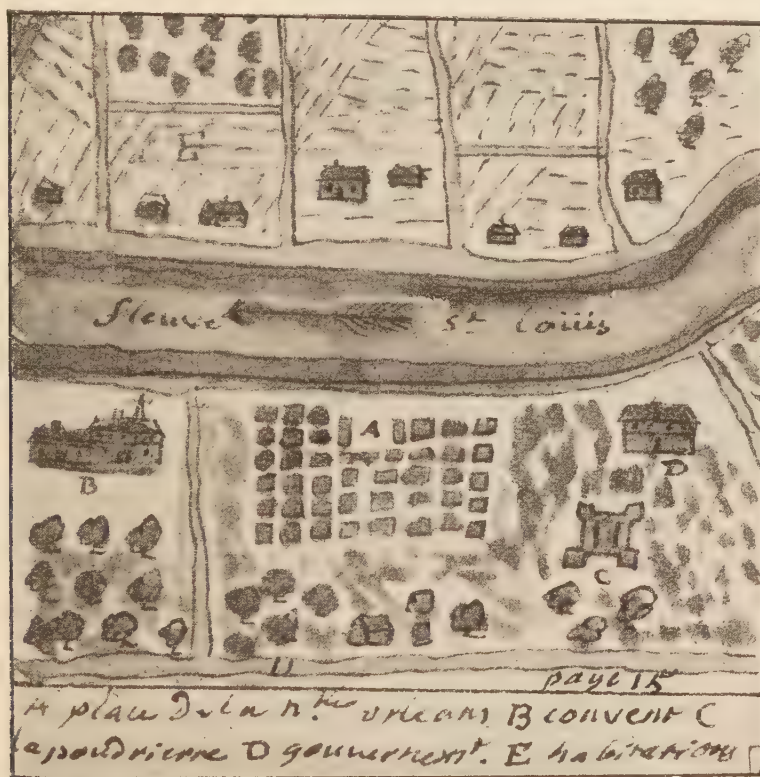 E
fleuve st loüis
A
B
D
C
D
page 15
A plan de la n.lle orleans B convent C
la poudrierre D gouvernemt. E habitations